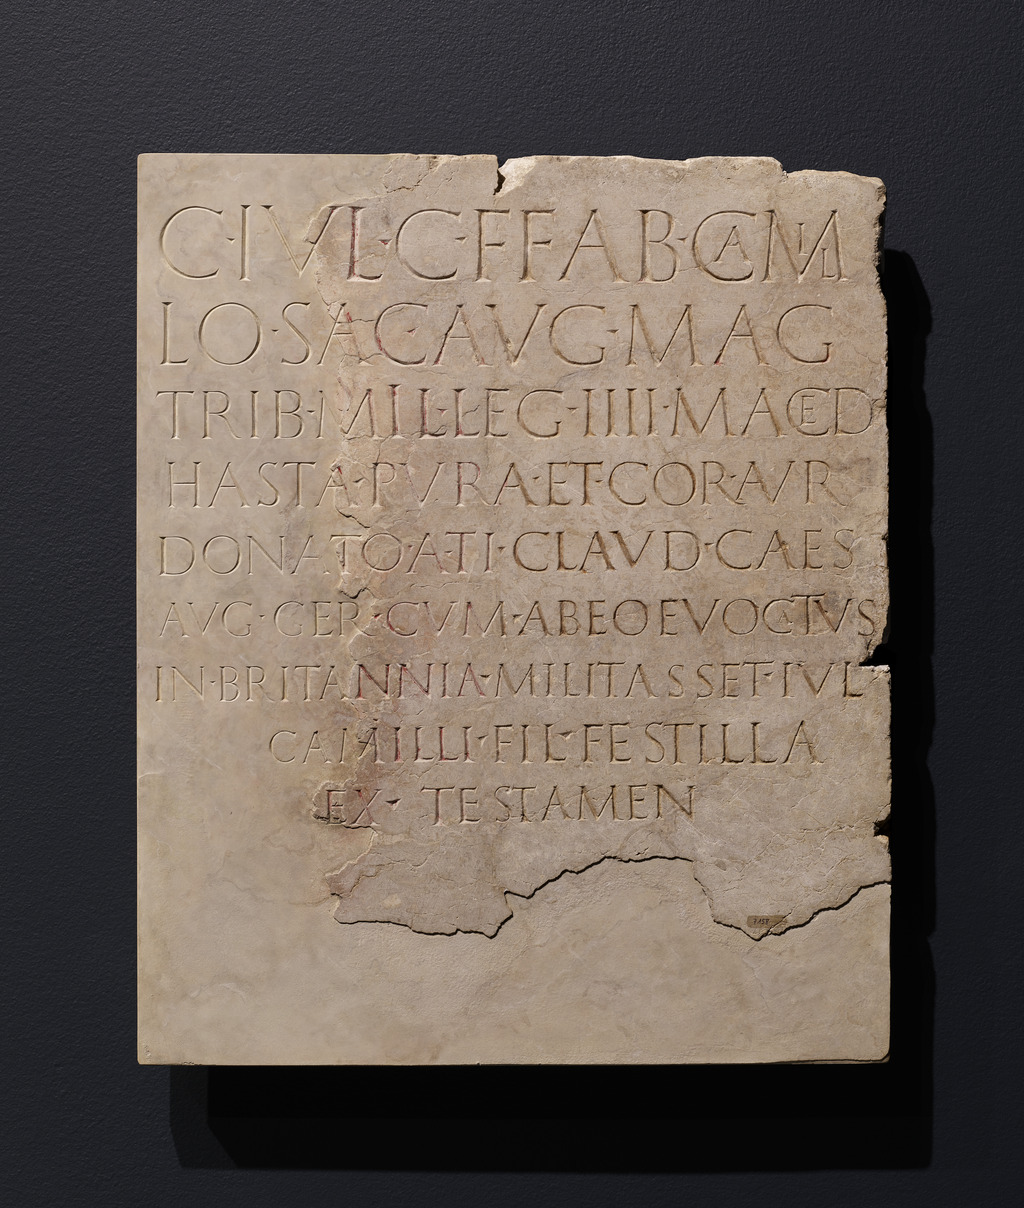 C·IVL·C·F·FAB·CAMIL
LO·SAC·AVG·MAG
TRIB·MIL·LEG·IIII·MACED
HASTA·PVRA·ET·COR·AVR
DONATO·A·TI·CLAVD·CAES
AVG·GER·CVM·AB·EO·EVOCATVS
IN·BRITANNIA·MILITASSET·IVL
CAMILLI·FIL·FESTILLA
EX·TESTAMEN